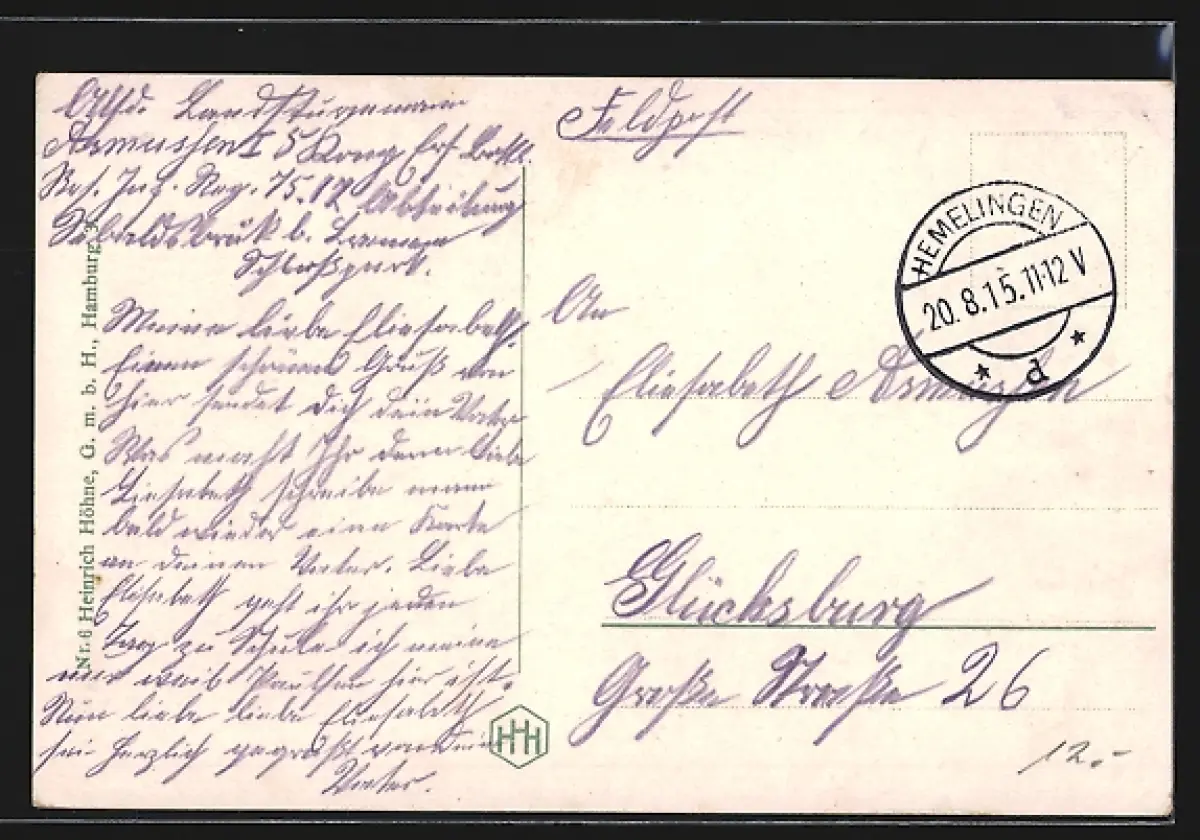 Absd. Landsturmmann
Asmussen I 5 Komp Ers. Batl.
Res. Inf. Reg. 75. 12 Abteilung
Sebaldsbrück b. Bremen
Schloßpark.
Meine liebe Eliesabeth.
Einen schönen Gruß von
hier sendet dich dein Vater
Was macht Ihr denn liebe
Eliesabeth schreibe man
bald wieder eine Karte
an deinen Vater. Liebe
Eliesabeth geht ihr jeden
Tag zu Schule ich meine
weil Paulsen hier ist.
Nun liebe liebe Eliesabeth
sei herzlich gegrüßt von dein
Vater.
Nr. 6 Heinrich Höhne, G. m. b. H., Hamburg 3
Feldpost
HEMELINGEN
20. 8. 15. 11-12 V
* d *
An
Eliesabeth Asmußen
Glücksburg
Große Straße 26
HHH
12.-